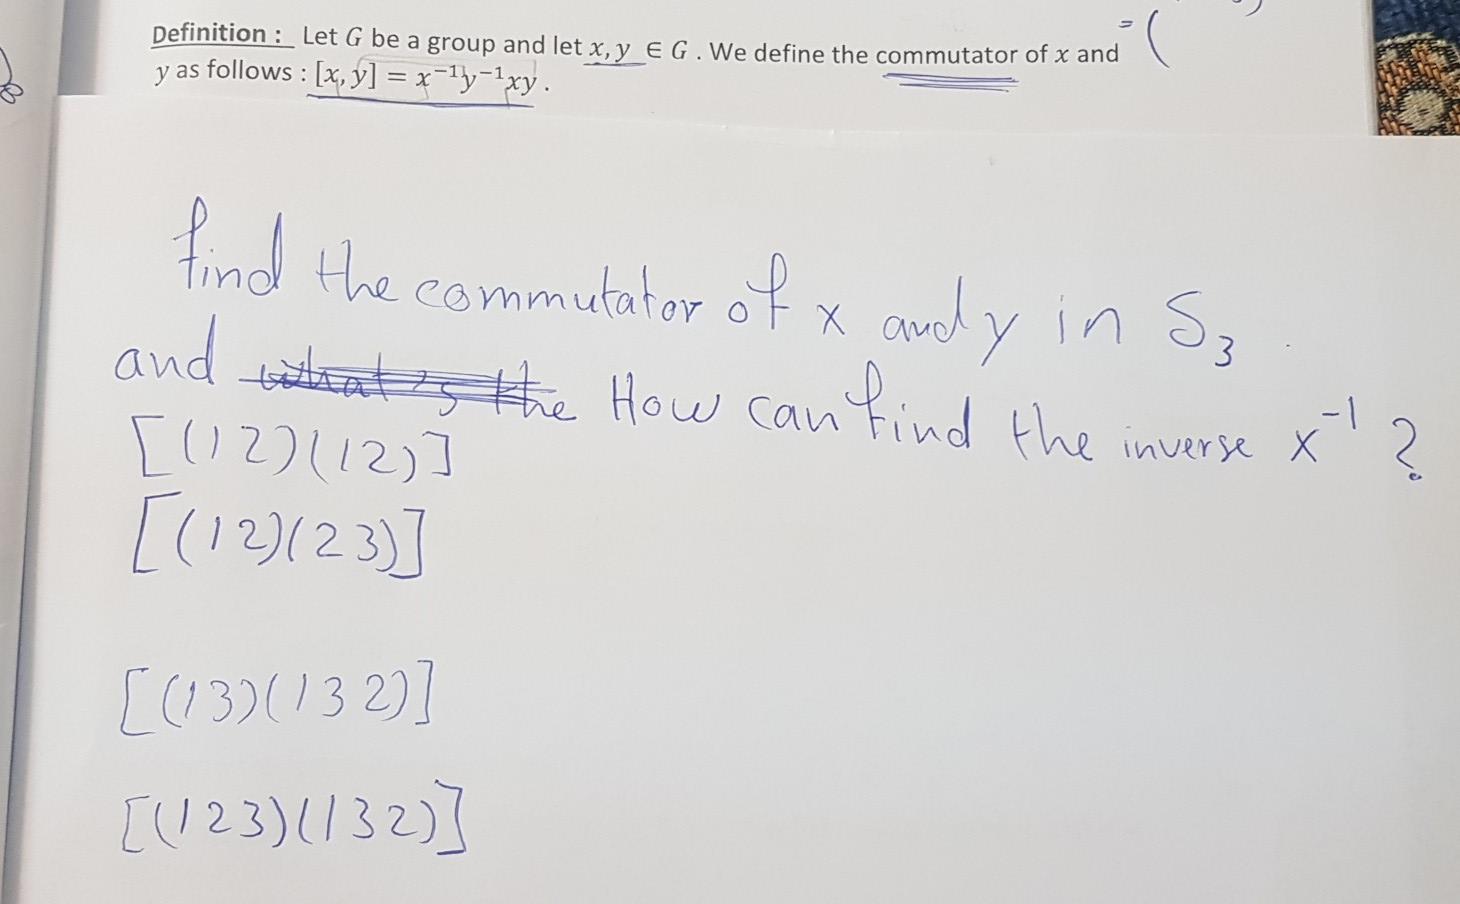 = (
Definition : Let G be a group and let x, y ∈ G . We define the commutator of x and
y as follows : [x, y] = x⁻¹y⁻¹xy .
find the commutator of x and y in S₃ .
and what's the How can find the inverse x⁻¹ ?
[(12)(12)]
[(12)(23)]
[(13)(132)]
[(123)(132)]